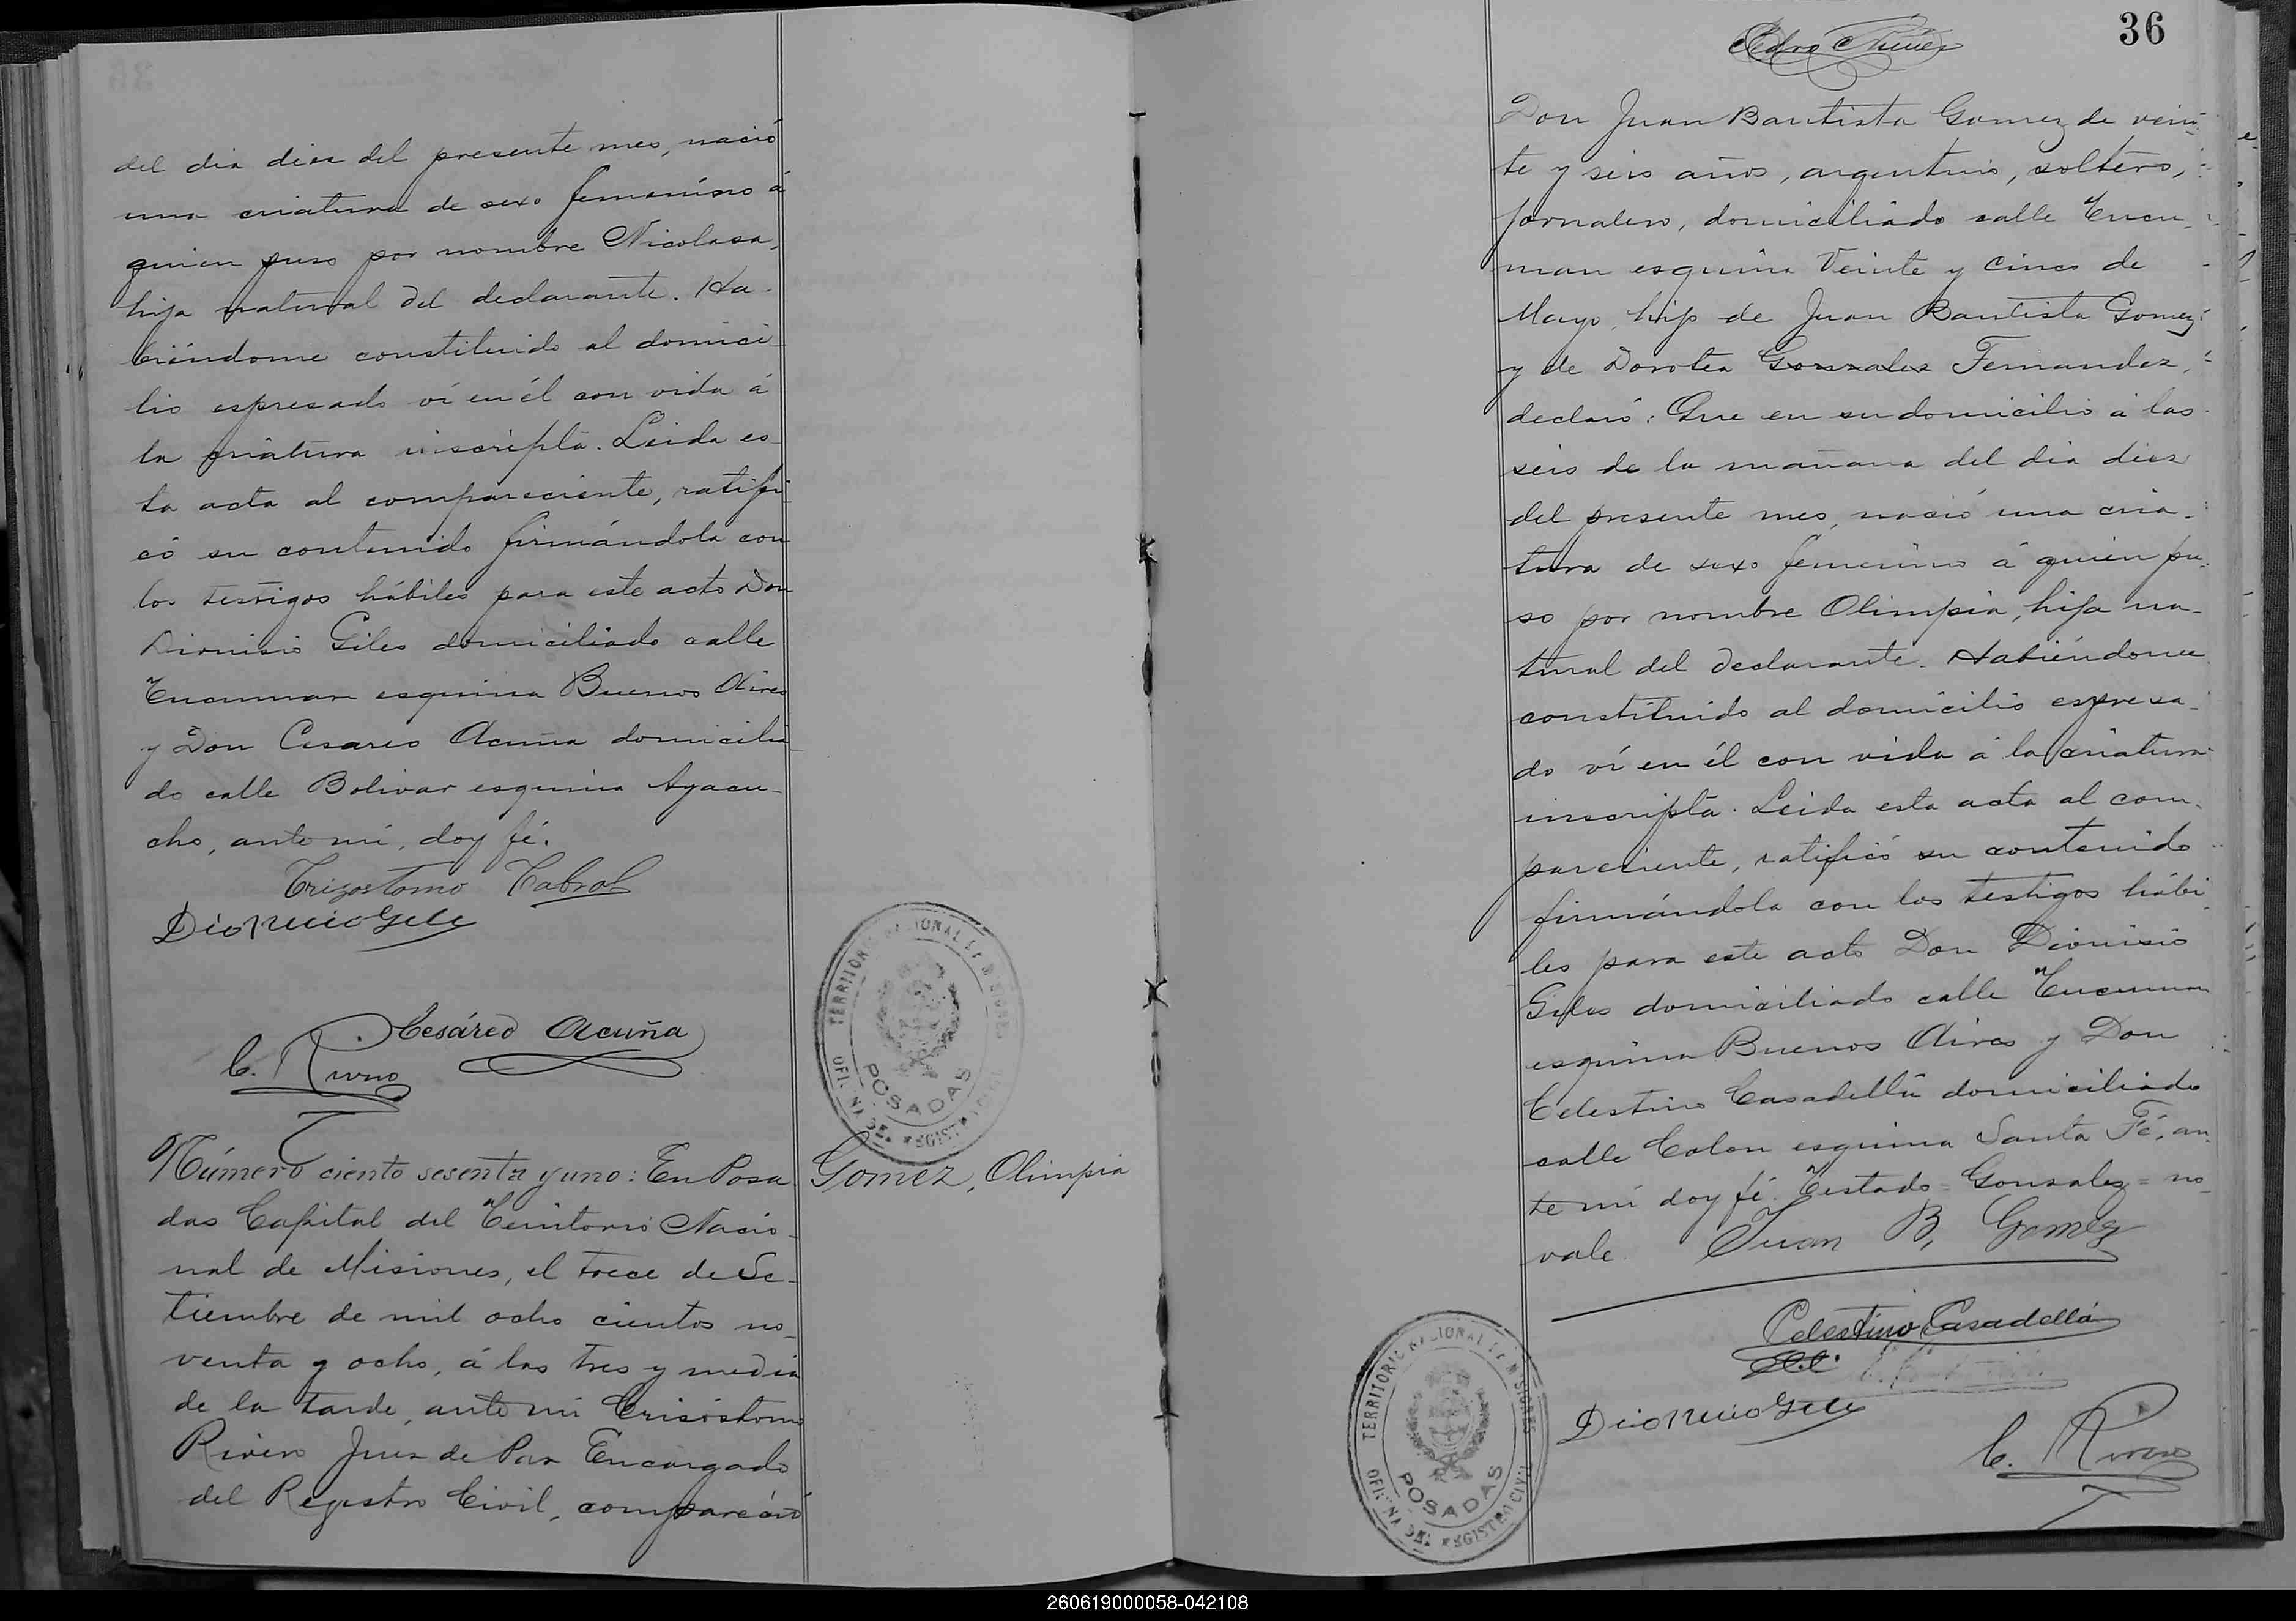 del dia diez del presente mes, nació
una criatura de sexo femenino á
quien puso por nombre Nicolasa,
hija natural del declarante. Ha-
biéndome constituido al domici
lio espresado ví en él con vida á
la criatura inscripta. Leida es
ta acta al compareciente, ratifi
có su contenido firmándola con
los testigos hábiles para este acto Don
Dionisio Giles domiciliado calle
Tucuman esquina Buenos Aires
y Don Cesareo Acuña domicilia
do calle Bolivar esquina Ayacu-
cho, ante mí, doy fé.
Crizostomo Cabral
Dionicio Gile
Cesáreo Acuña
C. Rivero
TERRITORIO NACIONAL DE MISIONES
OFICINA DEL REGISTRO CIVIL
POSADAS
Número ciento sesenta y uno: En Posa
Gomez, Olimpia
das Capital del Territorio Nacio-
nal de Misiones, el trece de Se-
tiembre de mil ocho cientos no-
venta y ocho, á las tres y media
de la tarde, ante mi Crisóstomo
Rivero Juez de Paz Encargado
del Registro Civil, compareció
36
Don Juan Bautista Gomez de vein-
te y seis años, argentino, soltero,
jornalero, domiciliado calle Tucu-
man esquina Veinte y Cinco de
Mayo, hijo de Juan Bautista Gomez
y de Dorotea Gonzales Fernandez,
declaró: Que en su domicilio á las
seis de la mañana del dia diez
del presente mes, nació una cria-
tura de sexo femenino á quien pu-
so por nombre Olimpia, hija na-
tural del declarante. Habiéndome
constituido al domicilio espresa-
do ví en él con vida á la criatura
inscripta. Leida esta acta al com-
pareciente, ratificó su contenido
firmándola con los testigos hábi
les para este acto Don Dionisio
Giles domiciliado calle Tucuman
esquina Buenos Aires y Don
Celestino Casadellá domiciliado
calle Colon esquina Santa Fé, an-
te mí doy fé. Testado = Gonzalez = no
vale. Juan B, Gomez
Celestino Casadellá
Dionicio Gile
C. Rivero
TERRITORIO NACIONAL DE MISIONES
OFICINA DEL REGISTRO CIVIL
POSADAS
260619000058-042108